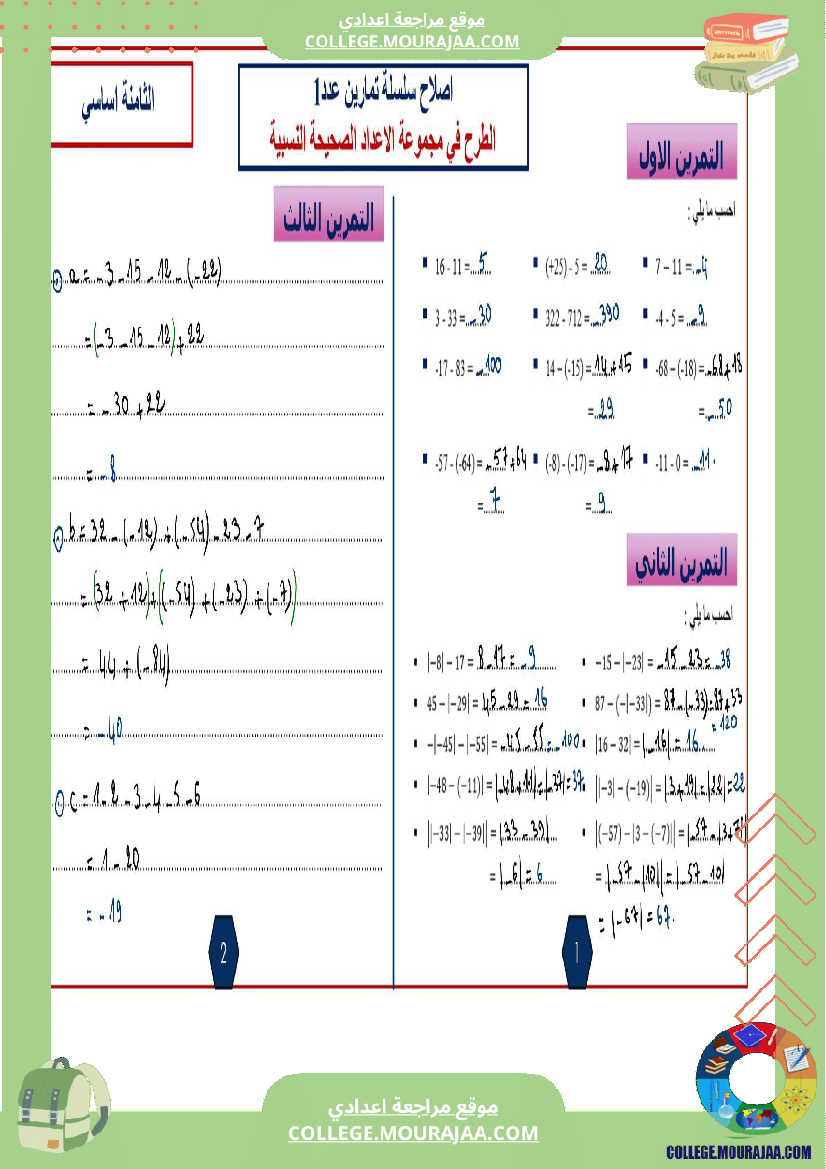 موقع مراجعة اعدادي
COLLEGE.MOURAJAA.COM
اصلاح سلسلة تمارين عدد1
الطرح في مجموعة الاعداد الصحيحة النسبية
الثامنة اساسي
التمرين الاول
احسب ما يلي :
16 - 11 = 5
(+25) - 5 = 20
7 – 11 = -4
3 - 33 = -30
322 - 712 = -390
-4 - 5 = -9
-17 - 83 = -100
14 – (-15) = 14+15
= 29
-68 – (-18) = -68+18
= -50
-57 - (-64) = -57+64
= 7
(-8) - (-17) = -8+17
= 9
-11 - 0 = -11.
التمرين الثاني
احسب ما يلي :
|−8| − 17 = 8-17 = -9
−15 − |−23| = -15-23 = -38
45 − |−29| = 45-29 = 16
87 − (−|−33|) = 87-(-33) = 87+33
= 120
−|−45| − |−55| = -45-55 = -100
|16 − 32| = |-16| = 16
|−48 − (−11)| = |-48+11| = |-37| = 37
||−3| − (−19)| = |3+19| = |22| = 22
||−33| − |−39|| = |33-39|
= |-6| = 6
|(−57) − |3 − (−7)|| = |-57-|3+7||
= |-57-|10|| = |-57-10|
= |-67| = 67.
1
التمرين الثالث
a = -3-15-12-(-22)
= (-3-15-12)+22
= -30+22
= -8
b = 32-(-12)+(-54)-23-7
= (32+12)+((-54)+(-23)+(-7))
= 44+(-84)
= -40
c = 1-2-3-4-5-6
= 1-20
= -19
2
موقع مراجعة اعدادي
COLLEGE.MOURAJAA.COM
COLLEGE.MOURAJAA.COM